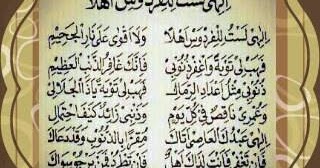 اِلٰهِى لَسْتُ لِلْفِرْدَوْسِ اَهْلاً
اِلٰهِى لَسْتُ لِلْفِرْدَوْسِ اَهْلاً وَلاَ اَقْوَى عَلَى نَارِ الْجَحِيْمِ
فَهَبْ لِى تَوْبَةً وَاغْفِرْ ذُنُوْبِى فَاِنَّكَ غَافِرُ الذَّنْبِ الْعَظِيْمِ
ذُنُوْبِى مِثْلُ اَعْدَادِ الرِّمَالِ فَهَبْ لِى تَوْبَةً يَاذَا الْجَلاَلِ
وَعُمْرِى نَاقِصٌ فِى كُلِّ يَوْمٍ وَذَنْبِى زَائِدٌ كَيْفَ احْتِمَالِ
اِلٰهِى عَبْدُكَ الْعَاصِى اَتَاكَ مُقِرًّا بِالذُّنُوْبِ وَقَدْ دَعَاكَ